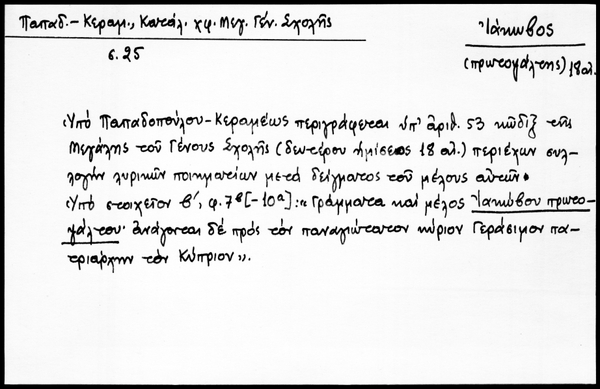 Παπαδ.-Κεραμ., Κατάλ. χφ. Μεγ. Γέν. Σχολῆς
σ. 25
Ἰάκωβος
(πρωτοψάλτης) 18 αἰ.
«Ὑπό Παπαδοπούλου-Κεραμέως περιγράφεται ὑπ' ἀριθ. 53 κῶδιξ τῆς
Μεγάλης τοῦ Γένους Σχολῆς (δευτέρου ἡμίσεος 18 αἰ.) περιέχων συλ-
λογήν λυρικῶν ποιηματίων μετά δείγματος τοῦ μέλους αὐτῶν.
«Ὑπό στοιχεῖον β', φ. 7β [-10α]: «Γράμματα καί μέλος Ἰακώβου πρωτο-
ψάλτου· ἀνάγεται δέ πρός τόν παναγιώτατον κύριον Γεράσιμον πα-
τριάρχην τόν Κύπριον».